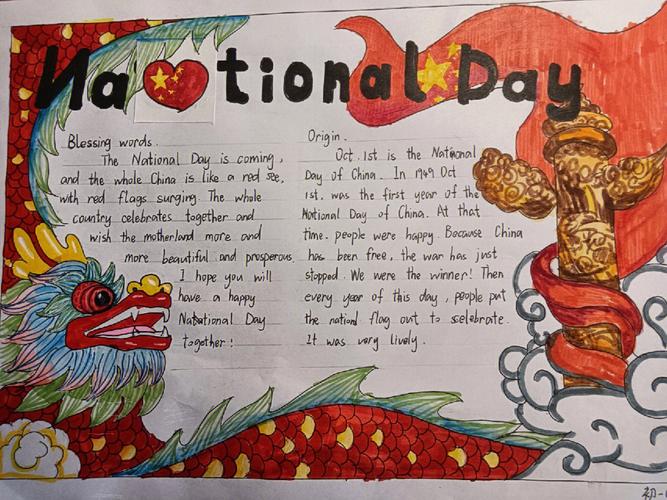 National Day
Blessing words.
The National Day is coming,
and the whole China is like a red see,
with red flags surging. The whole
country celebrates together and
wish the motherland more and
more beautiful and prosperous.
I hope you will
have a happy
Natational Day
together!
Origin.
Oct. 1st is the National
Day of China. In 1949 Oct
1st. was the first year of the
National Day of China. At that
time. people were happy. Because China
has been free, the war has just
stopped. We were the winner! Then
every year of this day, people put
the nationl flag out to selebrate.
It was very lively.